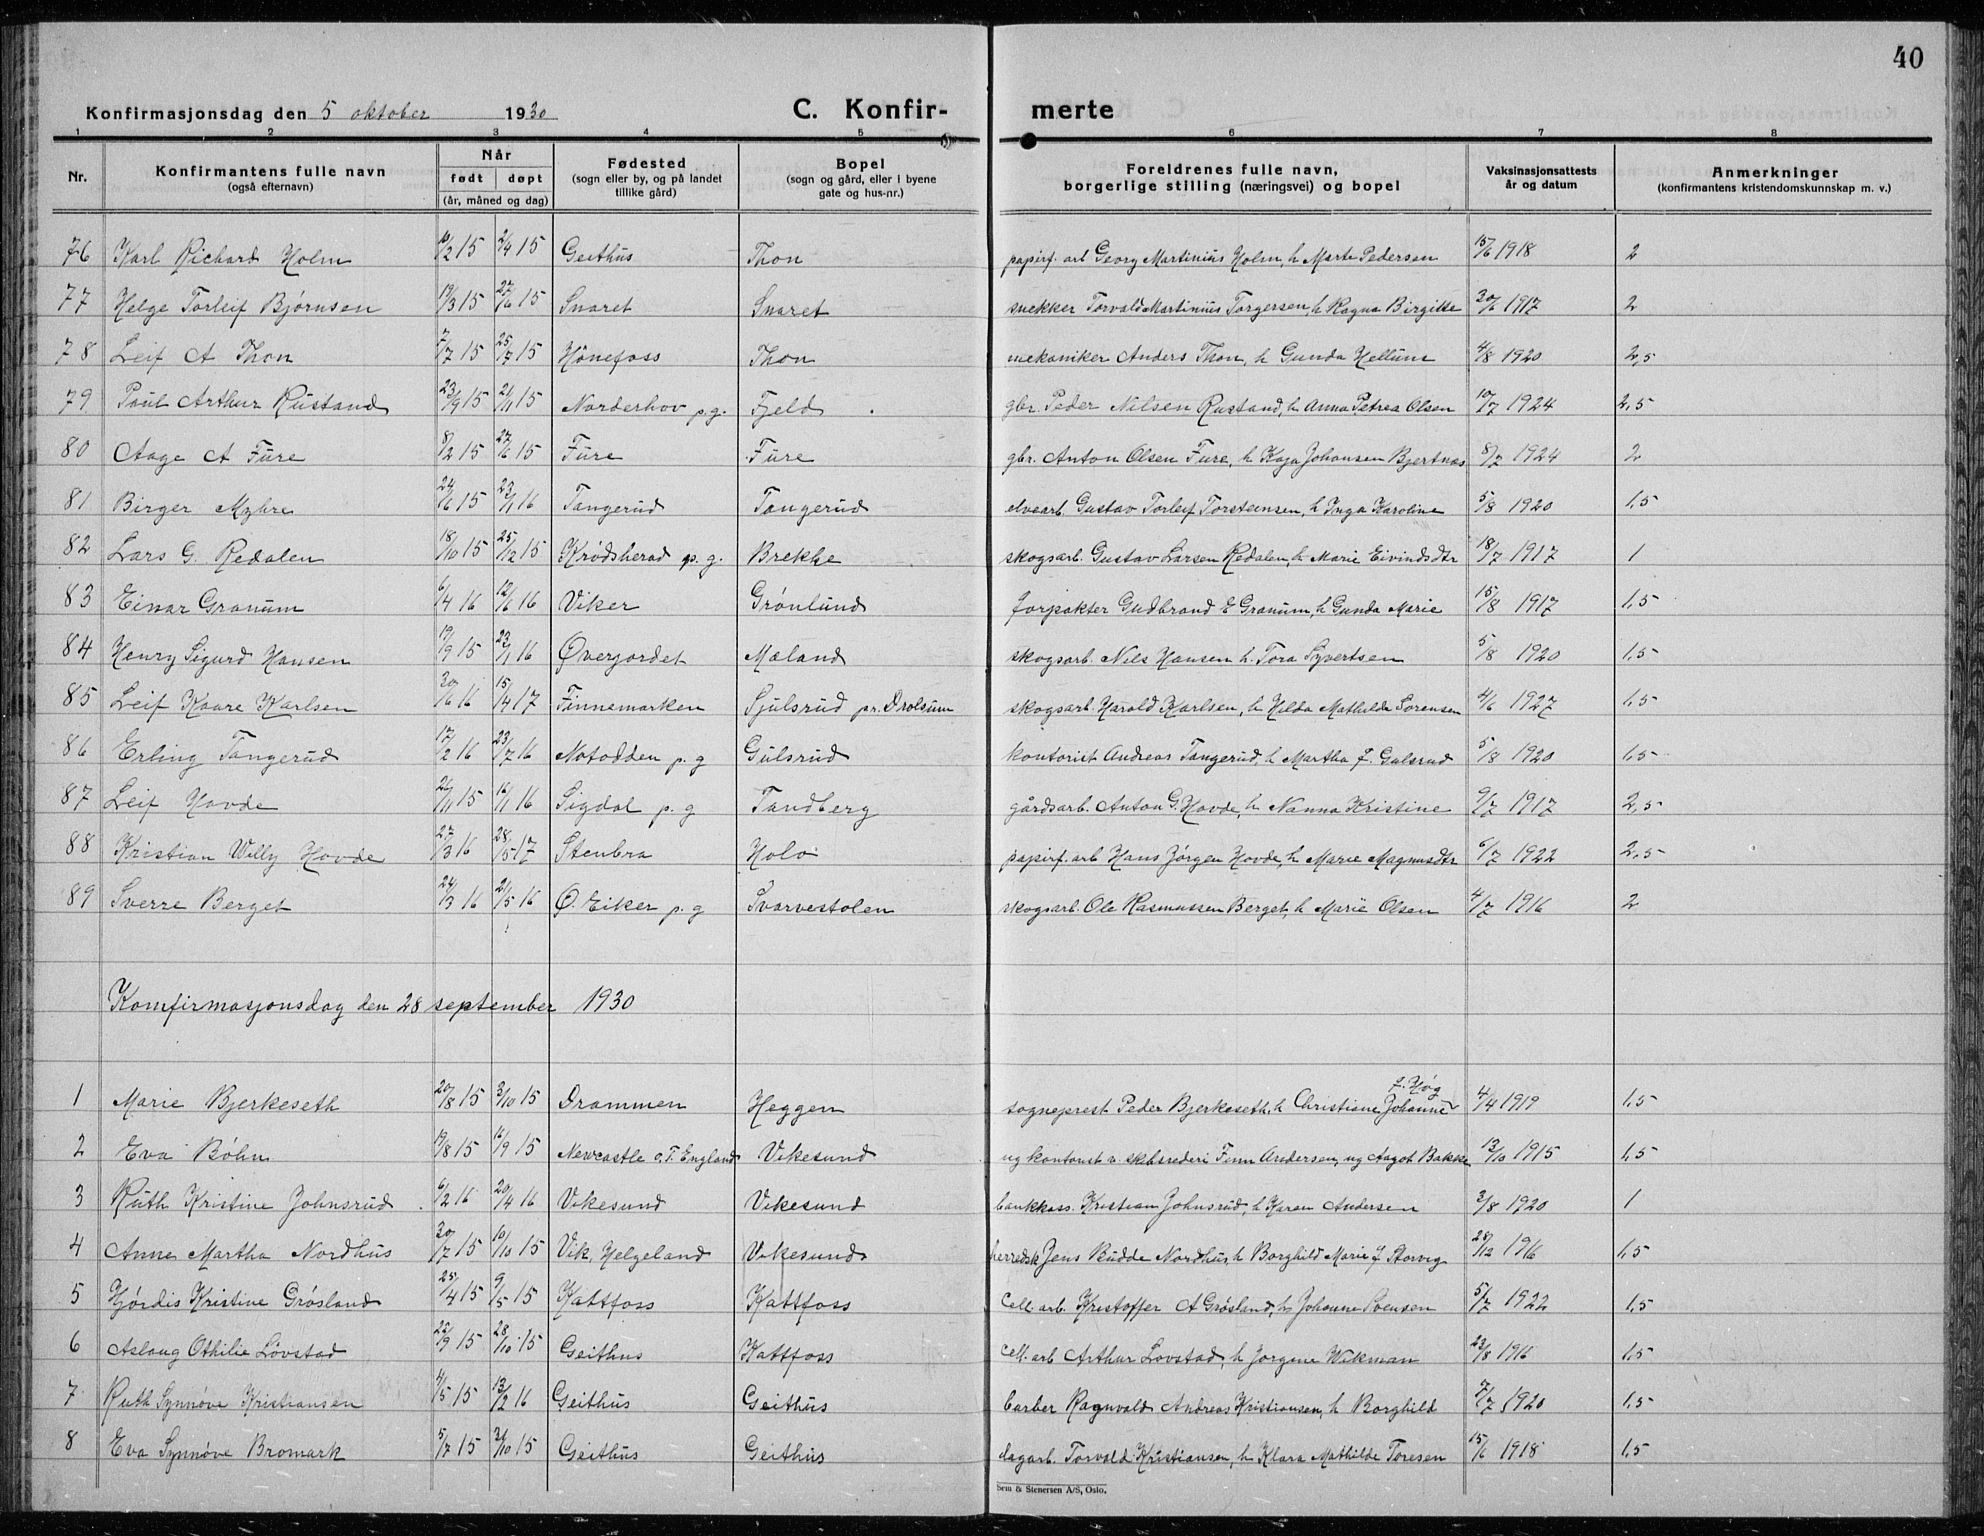 40
Konfirmasjonsdag den 5 oktober 1930 C. Konfir- merte
1 2 3 4 5 6 7 8
Nr. Konfirmantens fulle navn (også efternavn) Når født døpt (år, måned og dag) Fødested (sogn eller by, og på landet tillike gård) Bopel (sogn og gård, eller i byene gate og hus-nr.) Foreldrenes fulle navn, borgerlige stilling (næringsvei) og bopel Vaksinasjonsattests år og datum Anmerkninger (konfirmantens kristendomskunnskap m. v.)
76 Karl Richard Holm 15 2/4 15 Geithus Thon papirf. arb Georg Martinius Holm, h Marte Pedersen 15/6 1918 2
77 Helge Torleif Bjørnsen 19/3 15 27/6 15 Snaret Snaret snekker Torvald Martinius Torgersen, h Ragna Birgitte 20/6 1917 2
78 Leif A Thon 7/7 15 25/7 15 Hønefoss Thon mekaniker Anders Thon, h Gunda Hellum 4/8 1920 2,5
79 Paul Arthur Rustand 23/9 15 21/11 15 Norderhov p.g. Fjeld gbr. Peder Nilsen Rustand, h Anna Petrea Olsen 10/7 1924 2,5
80 Aage A Fure 8/2 15 27/6 15 Fure Fure gbr. Anton Olsen Fure, h Kaja Johansen Bjertnæs 8/7 1924 2
81 Birger Myhre 24/6 15 23/1 16 Tangerud Tangerud elvearb. Gustav Torleif Torsteinsen, h Inga Karoline 5/8 1920 1,5
82 Lars G. Redalen 18/10 15 25/12 15 Krødsherad p. g. Brekke skogsarb. Gustav Larsen Redalen, h Marie Eivindsdtr 18/7 1917 1
83 Einar Granum 6/4 16 12/6 16 Viker Grønlund forpakter Gudbrand E Granum, h Gunda Marie 15/8 1917 1,5
84 Henry Sigurd Hansen 19/9 15 23/1 16 Øverjordet Mæland skogsarb. Nils Hansen h. Tora Syvertsen 5/8 1920 1,5
85 Leif Kaare Karlsen 30/6 16 15/4 17 Finnemarken Sjulsrud pr. Drolsum skogsarb. Harald Karlsen, h Hilda Mathilde Sørensen 4/6 1927 1,5
86 Erling Tangerud 17/2 16 23/7 16 Notodden p. g Gulsrud kontorist Andreas Tangerud, h Martha f. Gulsrud 5/8 1920 1,5
87 Leif Hovde 15 16/1 16 Sigdal p. g Tandberg gårdsarb. Anton G. Hovde, h Nanna Kristine 9/7 1917 2,5
88 Kristian Willy Hovde 27/3 16 28/5 17 Stenbra Holo papirf. arb Hans Jørgen Hovde, h Marie Magnusdtr 6/7 1922 2,5
89 Sverre Berget 24/3 16 21/5 16 Ø. Eiker p. g Svarvestolen skogsarb. Ole Rasmussen Berget, h Marie Olsen 4/7 1916 2
Komfirmasjonsdag den 28 september 1930
f. Høg
1 Marie Bjerkeseth 20/8 15 3/10 15 Drammen Heggen sogneprest Peder Bjerkeseth, h Christiane Johanne 4/4 1919 1,5
2 Eva Bøhn 19/8 15 16/9 15 Newcastle o.T. England Vikesund ug kontorist v. skibsrederi Finn Andersen, ug Aagot Bakke 13/10 1915 1,5
3 Ruth Kristine Johnsrud 6/2 16 20/4 16 Vikesund Vikesund bankkass. Kristian Johnsrud, h Karen Andersen 3/8 1920 1
4 Anne Martha Nordhus 30/7 15 10/10 15 Vik, Helgeland Vikesund herredsk Jens Budde Nordhus, h Borghild Marie f Storvig 1916 1,5
5 Hjørdis Kristine Grøsland 25/4 15 9/5 15 Kattfoss Kattfoss cell. arb. Kristoffer A Grøsland, h Johanne Svensen 5/7 1922 1,5
6 Aslaug Othilie Løvstad 22/9 15 28/10 15 Geithus Kattfoss cell. arb Arthur Løvstad, h Jørgine Wekman 23/8 1916 1,5
7 Ruth Synnøve Kristiansen 4/5 15 13/2 16 Geithus Geithus barber Ragnvald Andreas Kristiansen, h Borghild 7/7 1920 1,5
8 Eva Synnøve Bromark 5/7 15 31/10 15 Geithus Geithus dagarb. Torvald Kristiansen, h Klara Mathilde Toresen 15/6 1918 1,5
Sem & Stenersen A/S, Oslo.